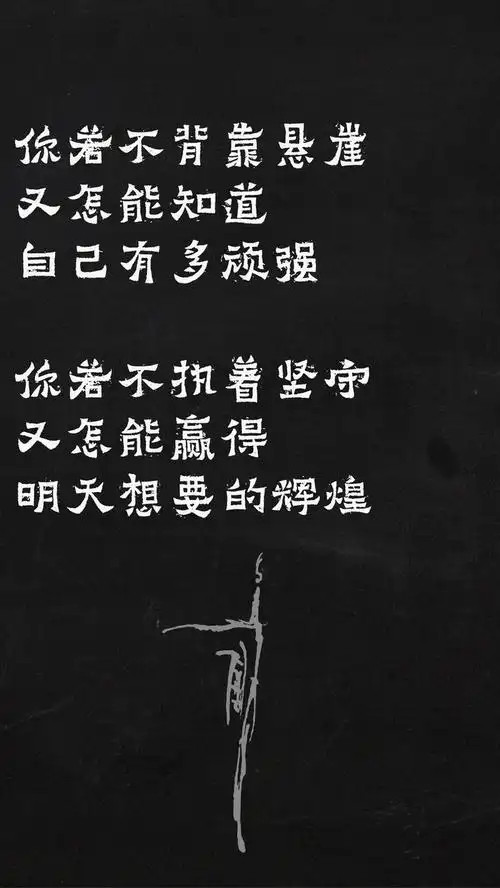 你若不背靠悬崖
又怎能知道
自己有多顽强
你若不执着坚守
又怎能赢得
明天想要的辉煌